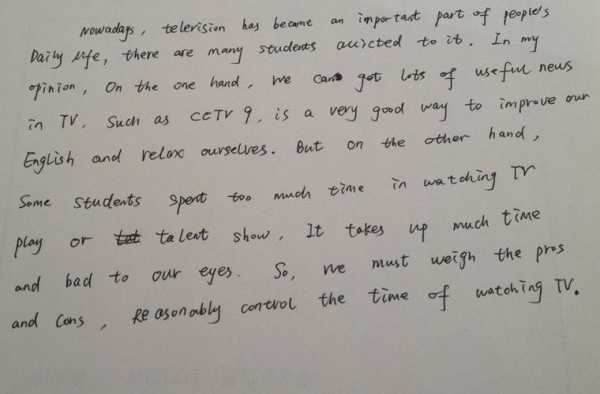 Nowadays, television has become an important part of people's
Daily life, there are many students auicted to it. In my
opinion, On the one hand, we can got lots of useful news
in TV. Such as CCTV 9, is a very good way to improve our
English and relax ourselves. But on the other hand,
Some students spent too much time in watching TV
play or talent show. It takes up much time
and bad to our eyes. So, we must weigh the pros
and cons, Reasonably control the time of watching TV.